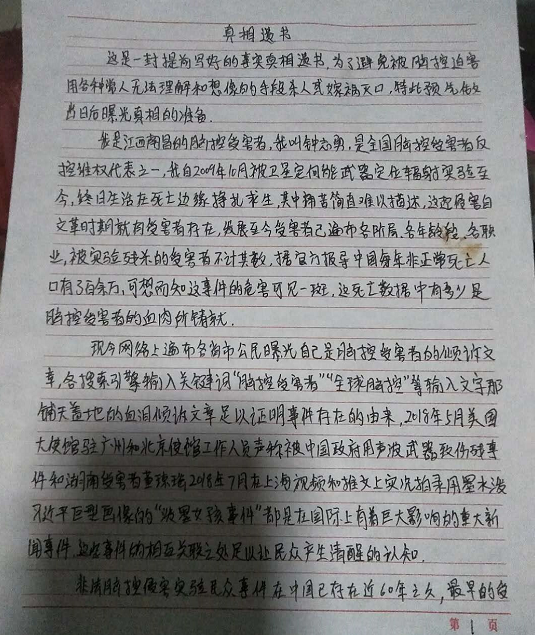 真相遗书
这是一封提前写好的真实真相遗书，为了避免被脑控迫害
用各种常人无法理解和想像的手段杀人或嫁祸灭口，特此预先做
当日后曝光真相的准备。
我是江西南昌的脑控受害者，我叫钟志勇，是全国脑控受害者反
控维权代表之一，我自2009年10月被卫星定向能武器定位辐射实验至
今，终日生活在死亡边缘挣扎求生，其中拥苦简直难以描述，这起侵害自
文革时期就有受害者存在，发展至今受害者已遍布各阶层、各年龄段、各职
业，被实验残杀的受害者不计其数，据官方报导中国每年非正常死亡人
口有了百余万，可想而知这事件的危害可见一斑，这死亡数据中有多少是
脑控受害者的血肉所铸就。
现今网络上遍布各省市公民曝光自己是脑控受害者的倾诉文
章，各搜索引擎输入关键词“脑控受害者”“全球脑控”等输入文字那
铺天盖地的血泪倾诉文章足以证明事件存在的由来，2018年5月美国
大使馆驻广州和北京使馆工作人员声称被中国政府用声波武器致伤残事
件和湖南受害者董瑶琼2018年7月在上海视频和推文上实况拍录用墨水泼
习近平巨型画像的“泼墨女孩事件”都是在国际上有着巨大影响的重大新
闻事件，这些事件的相互关联之处足以让民众产生清醒的认知。
非法脑控侵害实验民众事件在中国已存在近60年之久，最早的受
第1页